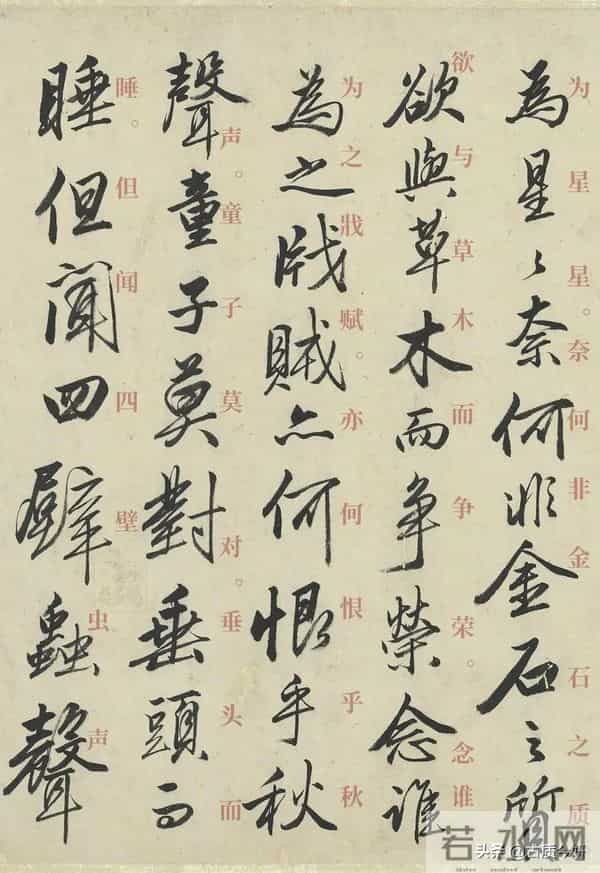 为星星。奈何非金石之质。
為星〻奈何非金石之質
欲与草木而争荣。念谁
欲與草木而争榮念誰
为之戕赋。亦何恨乎秋
為之戕賊亦何恨乎秋
声。童子莫对。垂头而
聲童子莫對垂頭而
睡。但闻四壁虫声
睡但聞四壁蟲聲
若水网
头条 @古质今妍